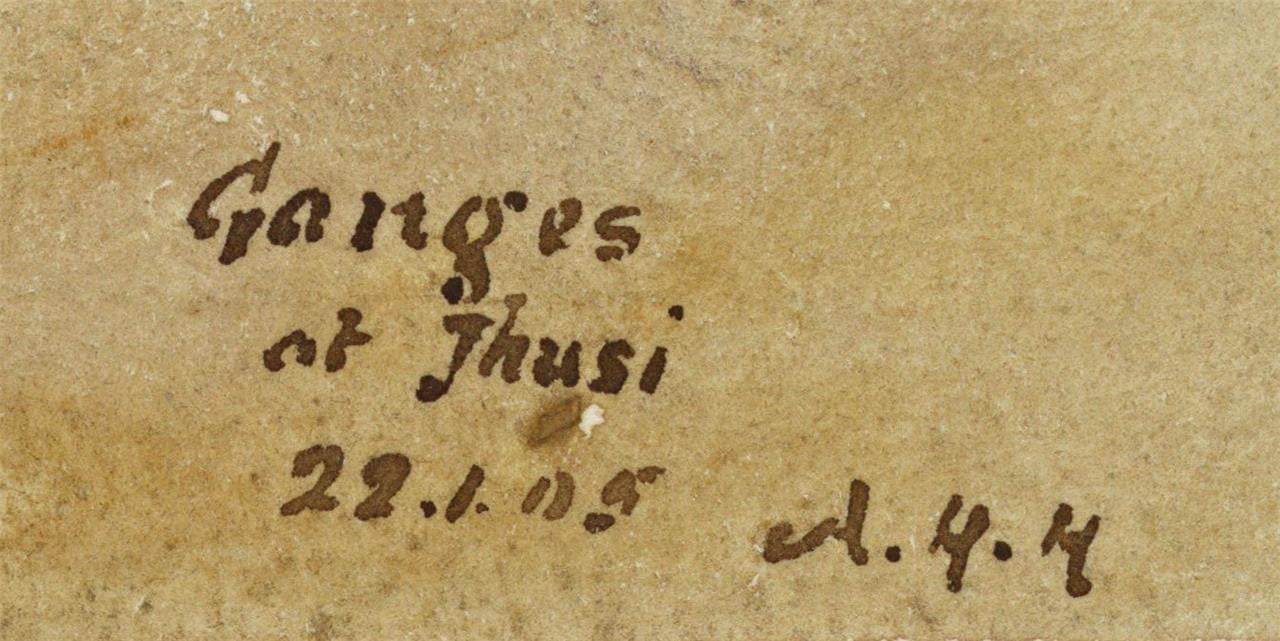 Ganges
at Jhusi
22.1.05